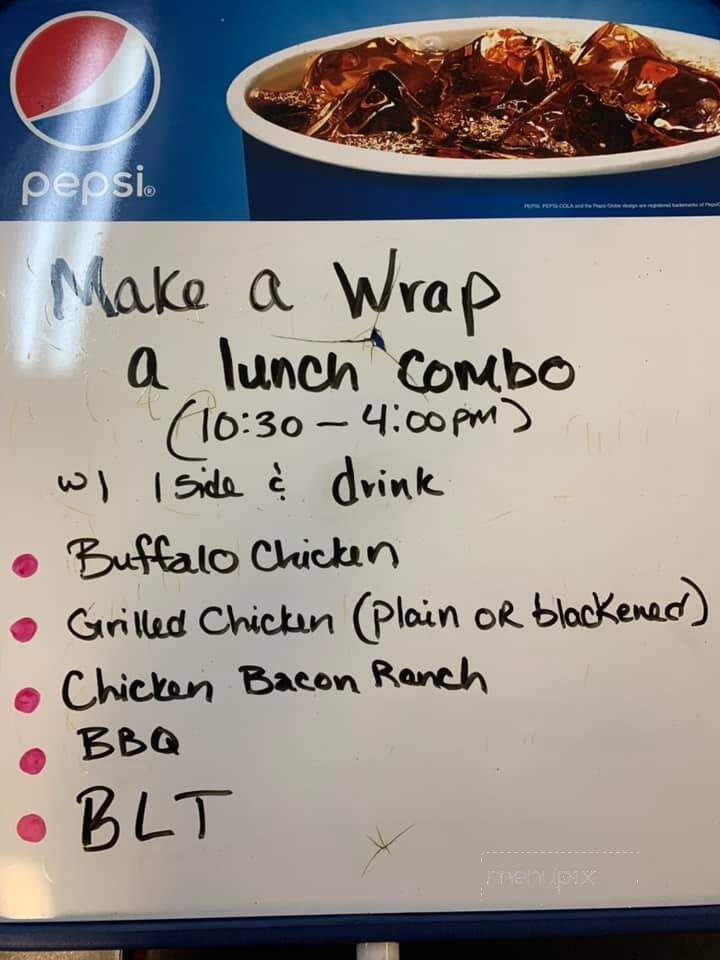 pepsi®
PEPSI, PEPSI-COLA and the Pepsi Globe design are registered trademarks of
Make a Wrap
a lunch combo
(10:30 - 4:00pm)
w/ 1 side & drink
Buffalo Chicken
Grilled Chicken (plain OR blackened)
Chicken Bacon Ranch
BBQ
BLT
menupix